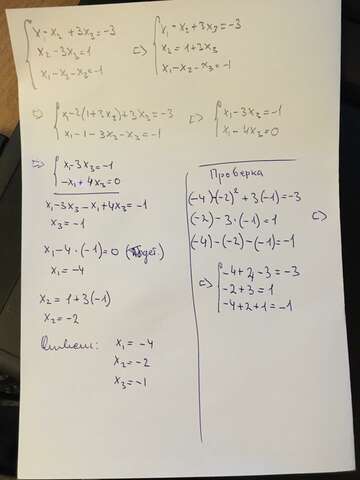 x-x₂+3x₃=-3
x₂-3x₃=1
x₁-x₂-x₃=-1
⇒
x₁-x₂+3x₃=-3
x₂=1+3x₃
x₁-x₂-x₃=-1
⇒
x-2(1+3x₃)+3x₃=-3
x₁-1-3x₃-x₃=-1
⇒
x₁-3x₃=-1
x₁-4x₃=0
⇒
x₁-3x₃=-1
-x₁+4x₃=0
x₁-3x₃-x₁+4x₃=-1
x₃=-1
x₁-4·(-1)=0
x₁=-4
x₂=1+3(-1)
x₂=-2
Ответ: x₁=-4
x₂=-2
x₃=-1
Проверка
(-4)-(-2)²+3(-1)=-3
(-2)-3·(-1)=1
(-4)-(-2)-(-1)=-1
⇒
⇒
-4+4-3=-3
-2+3=1
-4+2+1=-1